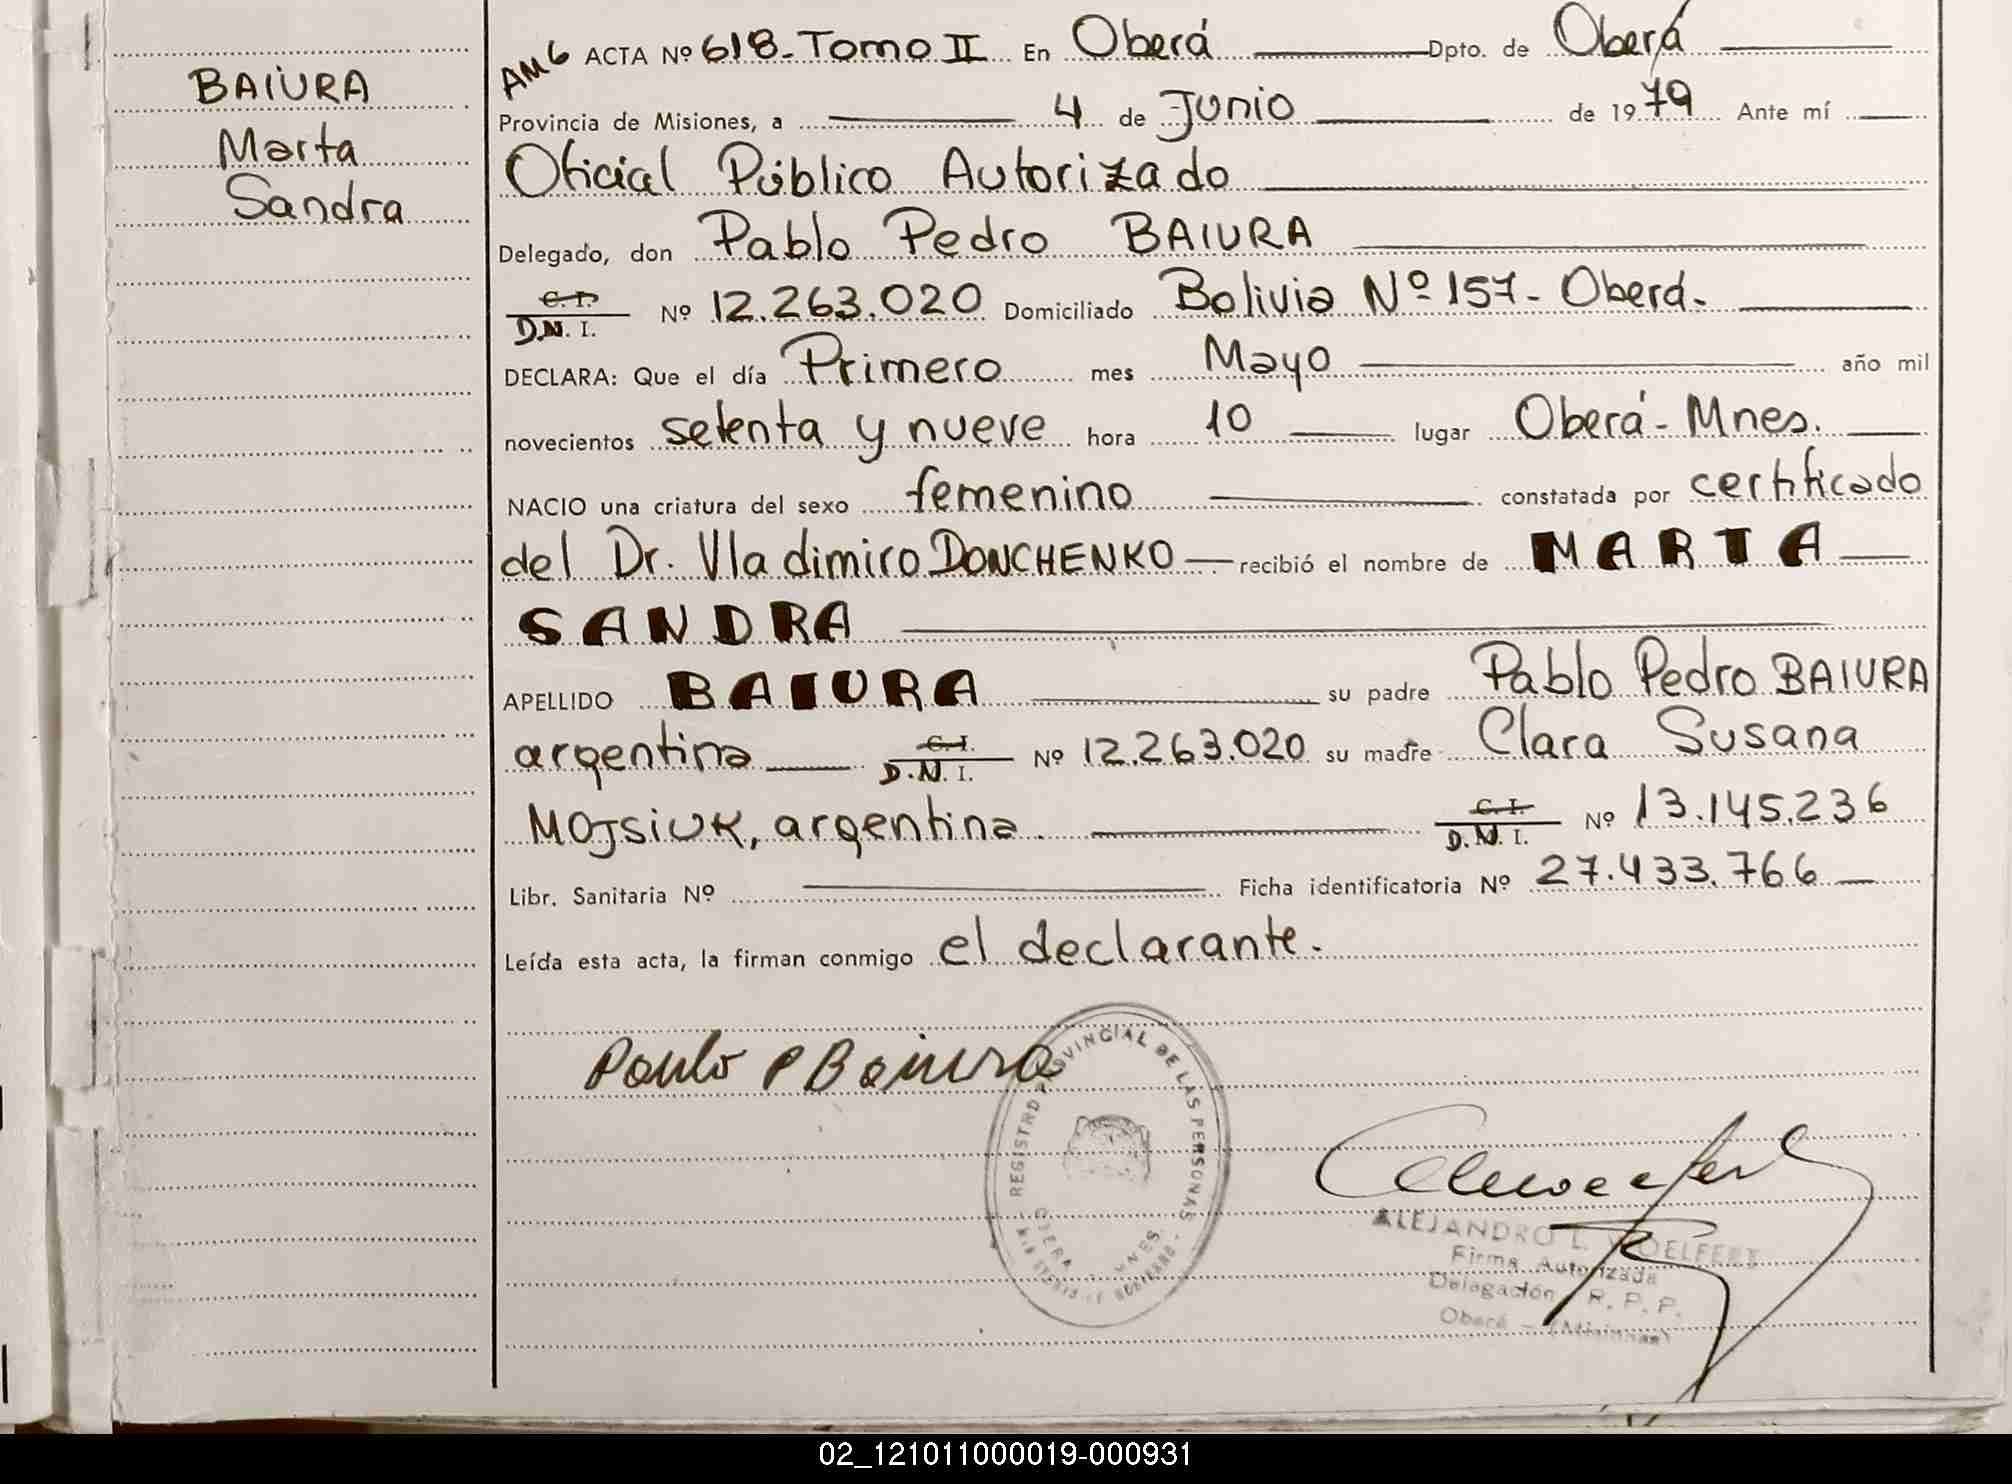 BAIURA
Marta
Sandra
AMG ACTA Nº 618-Tomo II En Oberá Dpto. de Oberá
Provincia de Misiones, a 4 de Junio de 1979 Ante mí
Oficial Público Autorizado
Delegado, don Pablo Pedro BAIURA
C. I.
D.N.I. Nº 12.263.020 Domiciliado Bolivia Nº 157- Oberá.
DECLARA: Que el día Primero mes Mayo año mil
novecientos setenta y nueve hora 10 lugar Oberá- Mnes.
NACIO una criatura del sexo femenino constatada por certificado
del Dr. Vladimiro DONCHENKO recibió el nombre de MARTA
SANDRA
APELLIDO BAIURA su padre Pablo Pedro BAIURA
argentina C.I. D.N.I. Nº 12.263.020 su madre Clara Susana
MOJSIUK, argentina. C.I. D.N.I. Nº 13.145.236
Libr. Sanitaria Nº Ficha identificatoria Nº 27.433.766
Leída esta acta, la firman conmigo el declarante.
Paulo P Baiura
REGISTRO PROVINCIAL DE LAS PERSONAS
OBERA MNES.
ALEJANDRO L. WOELFERT
Firma Autorizada
Delegación R. P. P.
Oberá - (Misiones)
02_121011000019-000931